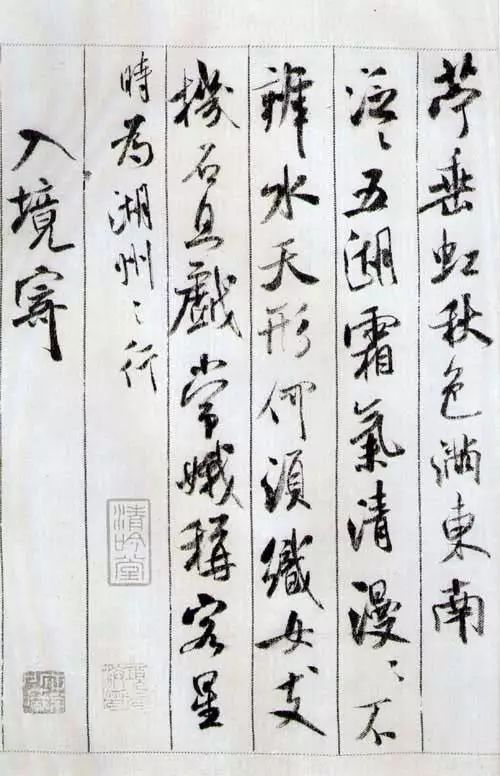 苧垂虹秋色滿東南
泛〻五湖霜氣清漫〻不
辨水天形何須織女支
機石且戲常娥稱客星
時為湖州〻行
清吟堂
入境寄